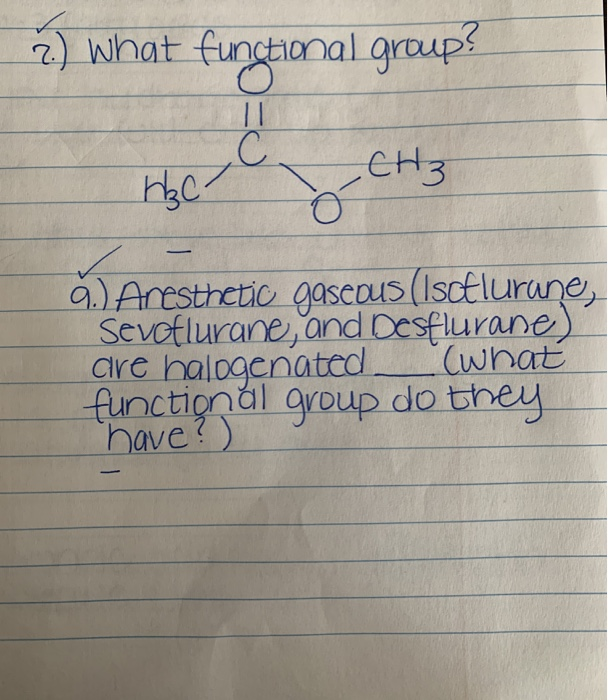 ?.) What functional group?
O
||
C
H3C
CH3
O
9.) Anesthetic gaseous (Isoflurane,
Sevoflurane, and Desflurane)
are halogenated ___ (what
functional group do they
have?)